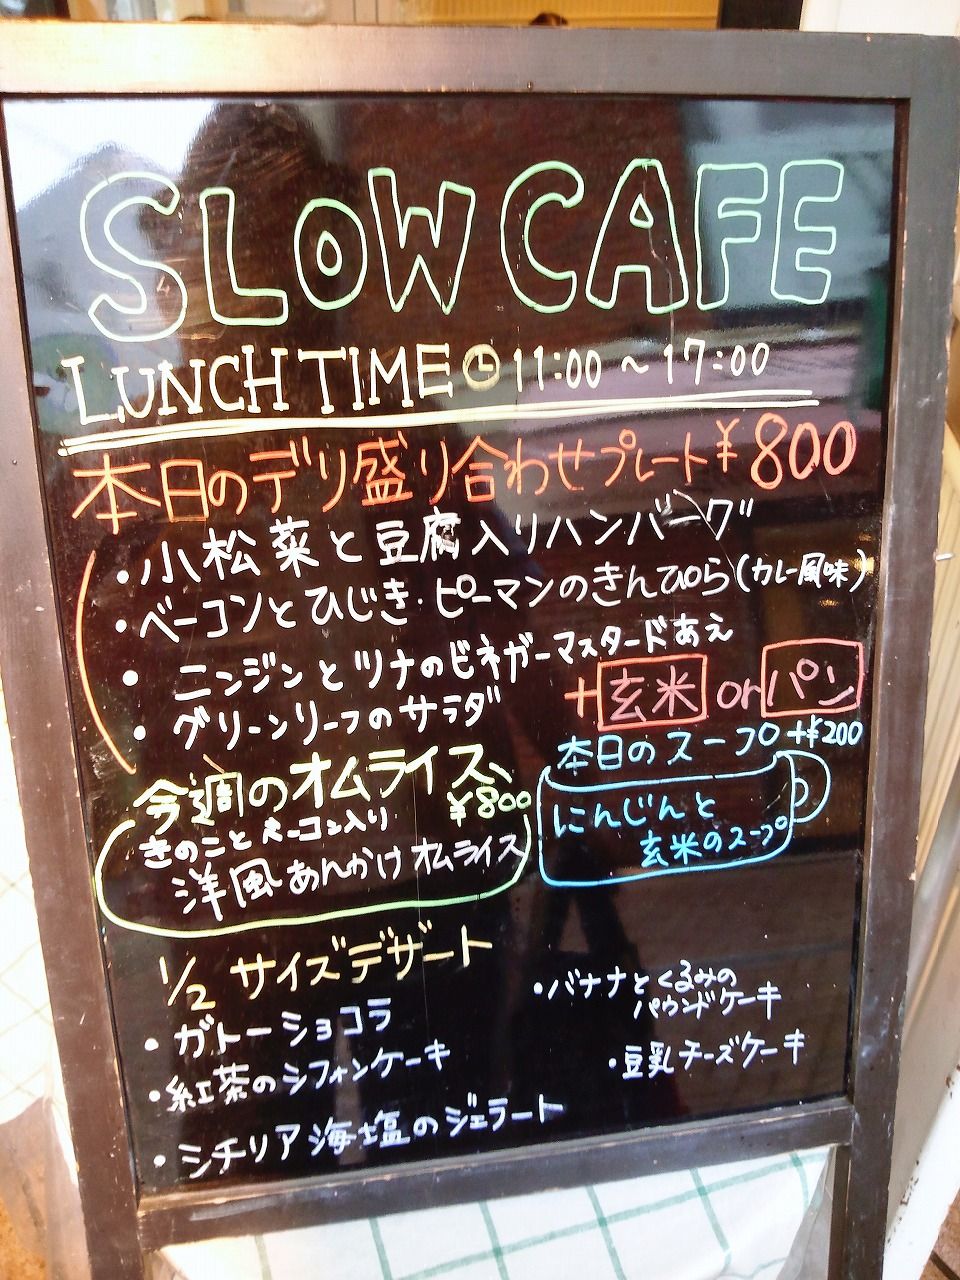 SLOW CAFE
LUNCH TIME 11:00 ~ 17:00
本日のデリ盛り合わせプレート ¥800
・小松菜と豆腐入りハンバーグ
・ベーコンとひじき・ピーマンのきんぴら(カレー風味)
・ニンジンとツナのビネガーマスタードあえ
・グリーンリーフのサラダ
+玄米 or パン
本日のスープ +¥200
にんじんと
玄米のスープ
今週のオムライス
¥800
きのことベーコン入り
洋風あんかけオムライス
1/2 サイズデザート
・ガトーショコラ
・紅茶のシフォンケーキ
・シチリア海塩のジェラート
・バナナとくるみの
パウンドケーキ
・豆乳チーズケーキ